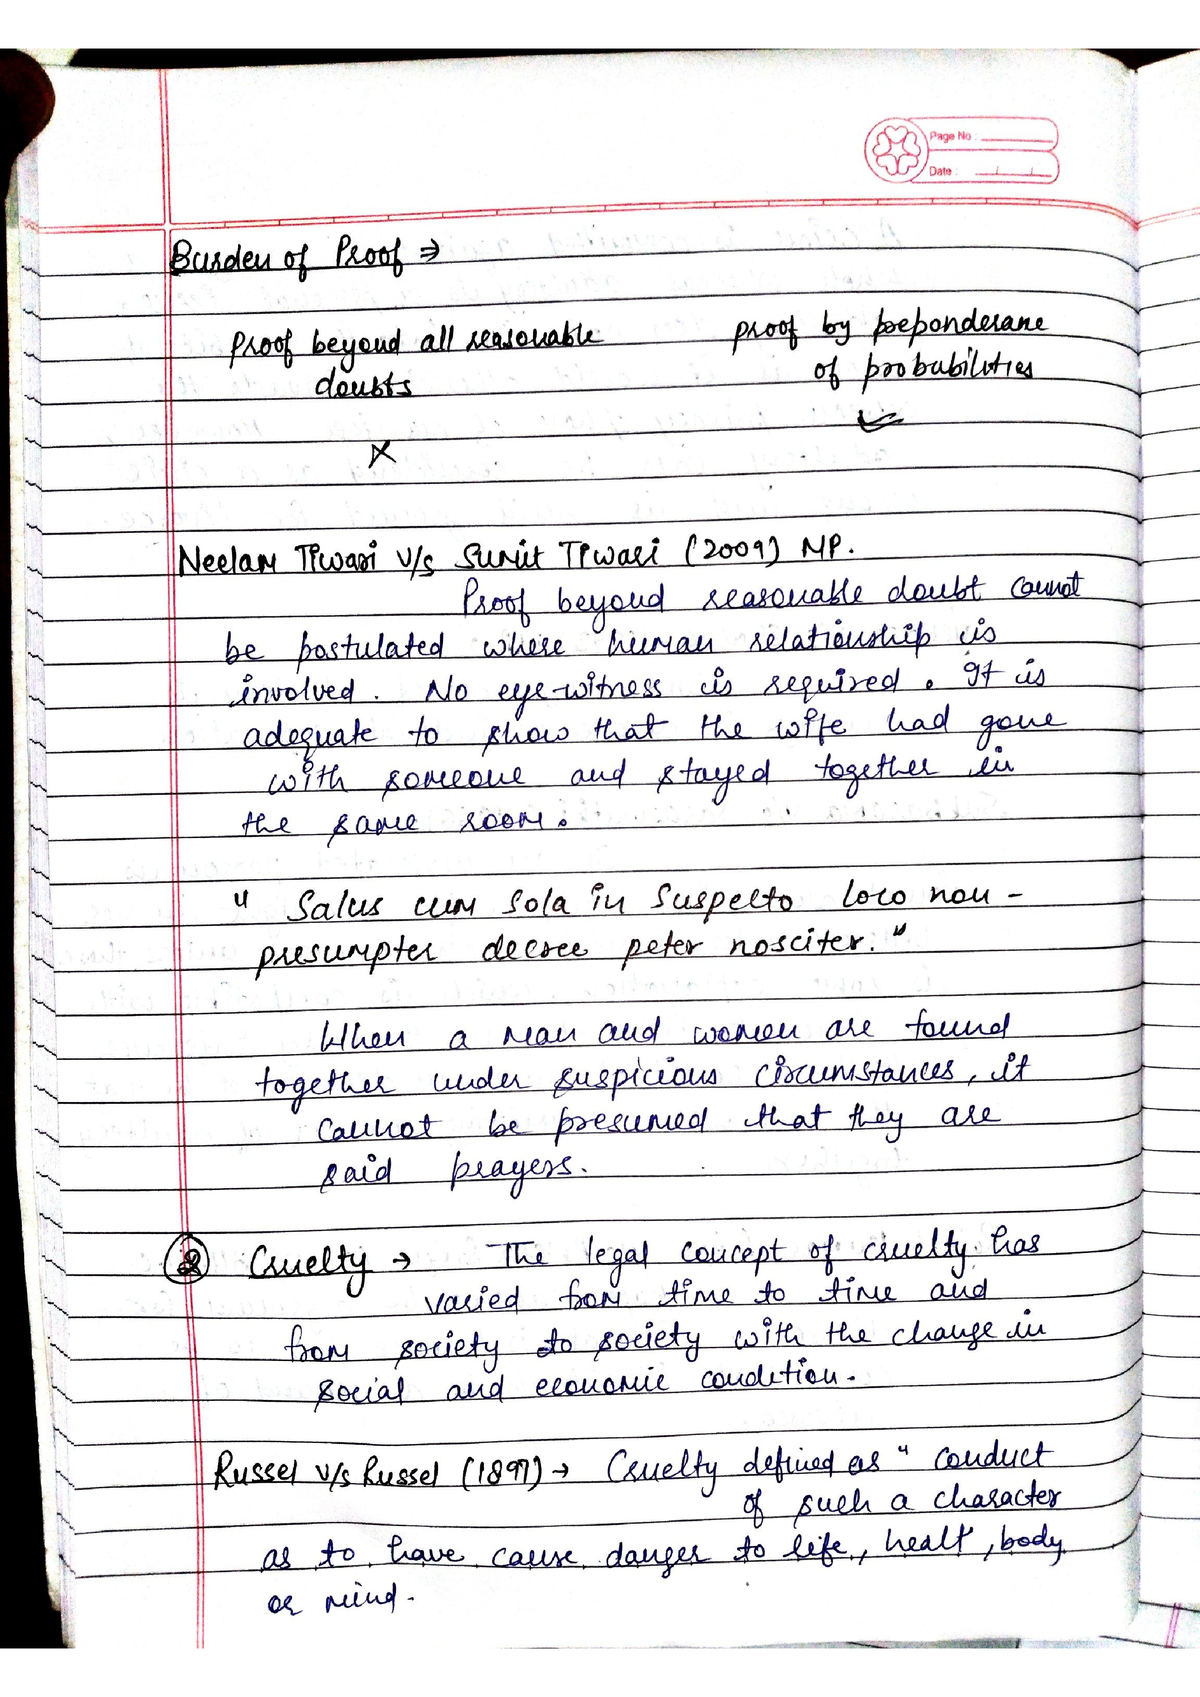 Page No :
Date :
Burden of Proof ⇒
Proof beyond all reasonable
doubts
×
proof by preponderane
of probabilities
✓
Neelam Tiwari v/s Sumit Tiwari (2009) MP.
Proof beyond reasonable doubt cannot
be postulated where human relationship is
involved. No eye-witness is required. It is
adequate to show that the wife had gone
with someone and stayed together in
the same room.
" Salus cum Sola in Suspecto loco non -
presumpter decree peter nosciter. "
When a man and women are found
together under suspicious circumstances, it
cannot be presumed that they are
said prayers.
② Cruelty → The legal concept of cruelty has
varied from time to time and
from society to society with the change in
social and economic condition.
Russel v/s Russel (1897) → Cruelty defined as " conduct
of such a character
as to have cause danger to life, healt, body
or mind.